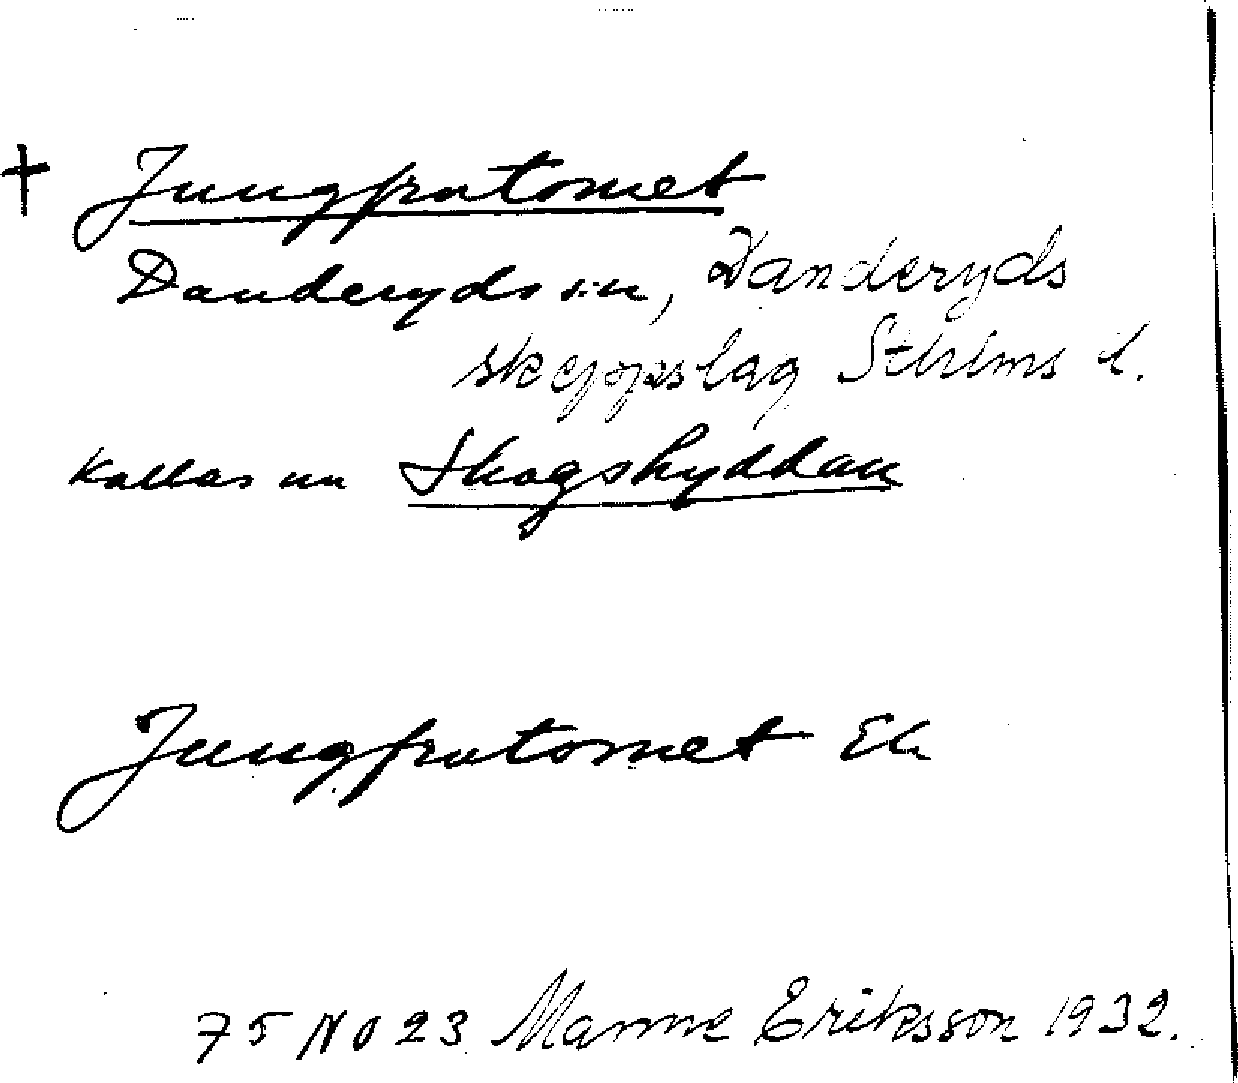 + Jungfrutornet
Danderyds sn, Danderyds
skeppslag Sthlms l.
Kallas nu Skogshyddan
Jungfrutornet Ek
75 NO 23 Manne Eriksson 1932.